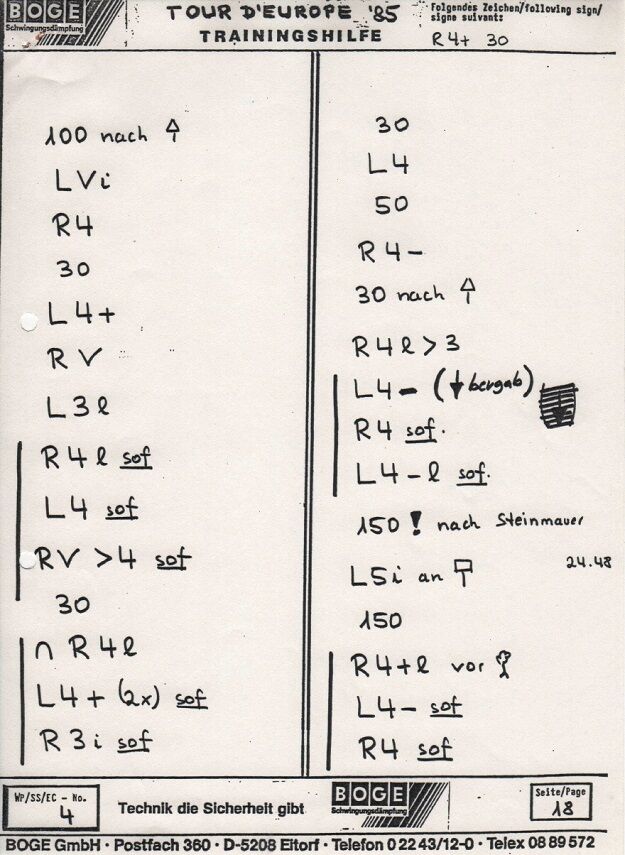 BOGE
Schwingungsdämpfung
TOUR D'EUROPE '85
TRAININGSHILFE
Folgendes Zeichen/following sign/
signe suivant:
R4+ 30
100 nach
LVi
R4
30
L4+
RV
L3l
R4l sof
L4 sof
RV >4 sof
30
∩ R4l
L4+ (2x) sof
R3i sof
30
L4
50
R4-
30 nach
R4l>3
L4- (↓ bergab)
R4 sof.
L4-l sof.
150 ! nach Steinmauer
24.48
L5i an
150
R4+l vor
L4- sof
R4 sof
WP/SS/EC - No.
4
Technik die Sicherheit gibt
BOGE
Schwingungsdämpfung
Seite/Page
18
BOGE GmbH · Postfach 360 · D-5208 Eitorf · Telefon 0 22 43/12-0 · Telex 08 89 572